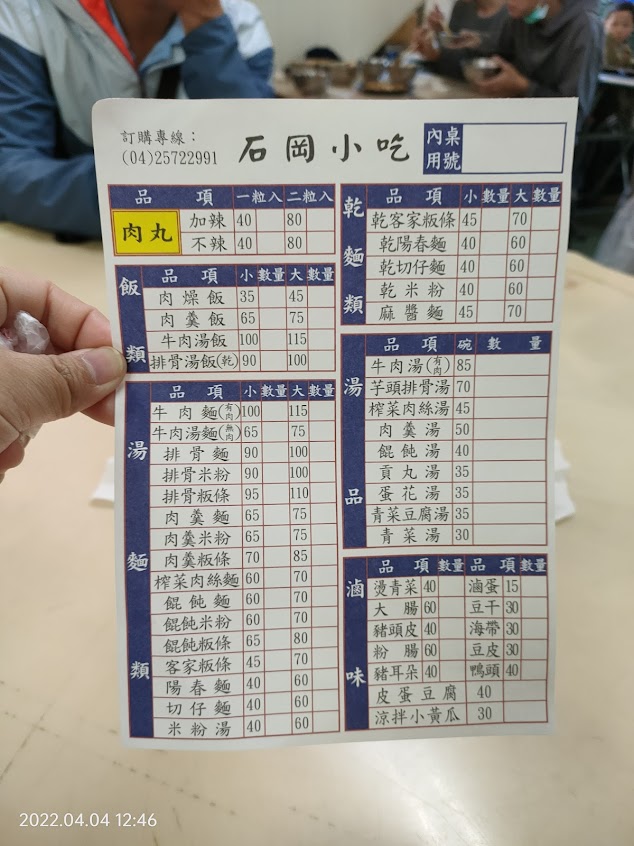 訂購專線：
(04)25722991
石岡小吃
內用桌號
品項 一粒入 二粒入
肉丸
加辣 40 80
不辣 40 80
飯類
品項 小 數量 大 數量
肉燥飯 35 45
肉羹飯 65 75
牛肉湯飯 100 115
排骨湯飯(乾) 90 100
湯麵類
品項 小 數量 大 數量
牛肉麵(有肉) 100 115
牛肉湯麵(無肉) 65 75
排骨麵 90 100
排骨米粉 90 100
排骨粄條 95 110
肉羹麵 65 75
肉羹米粉 65 75
肉羹粄條 70 85
榨菜肉絲麵 60 70
餛飩麵 60 70
餛飩米粉 60 70
餛飩粄條 65 80
客家粄條 45 70
陽春麵 40 60
切仔麵 40 60
米粉湯 40 60
乾麵類
品項 小 數量 大 數量
乾客家粄條 45 70
乾陽春麵 40 60
乾切仔麵 40 60
乾米粉 40 60
麻醬麵 45 70
湯品
品項 碗 數量
牛肉湯(有肉) 85
芋頭排骨湯 70
榨菜肉絲湯 45
肉羹湯 50
餛飩湯 40
貢丸湯 35
蛋花湯 35
青菜豆腐湯 35
青菜湯 30
滷味
品項 數量 品項 數量
燙青菜 40 滷蛋 15
大腸 60 豆干 30
豬頭皮 40 海帶 30
粉腸 60 豆皮 30
豬耳朵 40 鴨頭 40
皮蛋豆腐 40
涼拌小黃瓜 30
2022.04.04 12:46